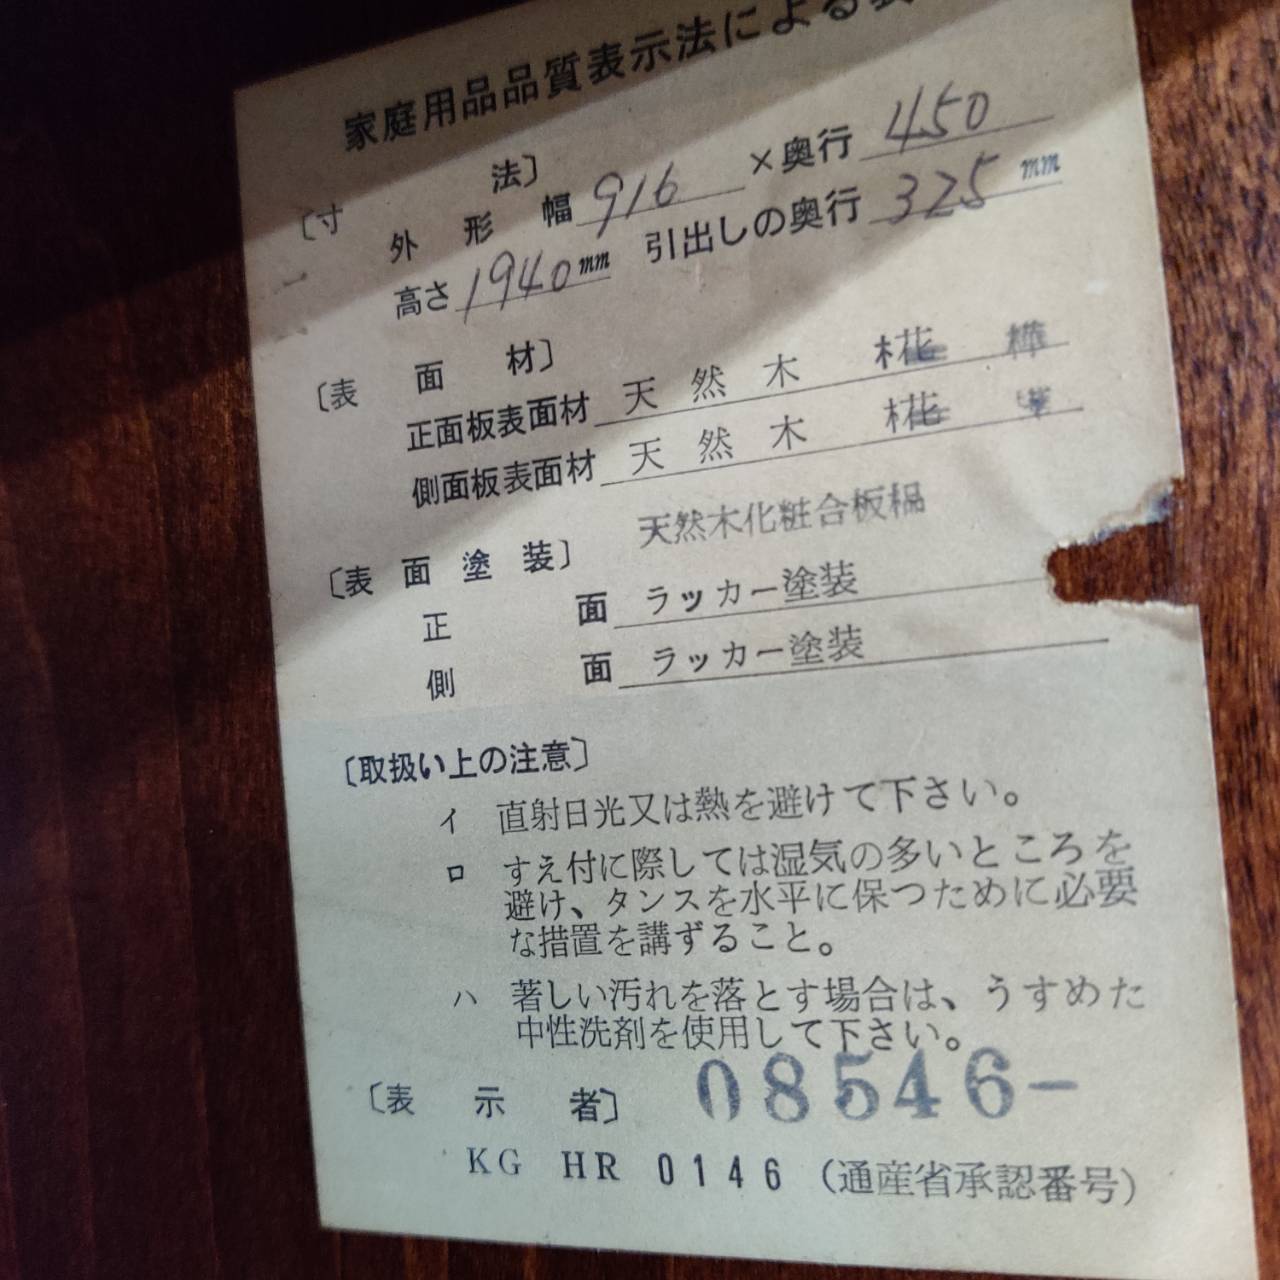 家庭用品品質表示法による表
〔寸　　　法〕
外形　幅 916 ×奥行 450
高さ 1940mm 引出しの奥行 325 mm
〔表　面　材〕
正面板表面材 天然木 椛 樺
側面板表面材 天然木 椛
天然木化粧合板
〔表面塗装〕
正　　面 ラッカー塗装
側　　面 ラッカー塗装
〔取扱い上の注意〕
イ 直射日光又は熱を避けて下さい。
ロ すえ付に際しては湿気の多いところを
避け、タンスを水平に保つために必要
な措置を講ずること。
ハ 著しい汚れを落とす場合は、うすめた
中性洗剤を使用して下さい。
〔表　示　者〕 08546-
KG HR 0146 (通産省承認番号)